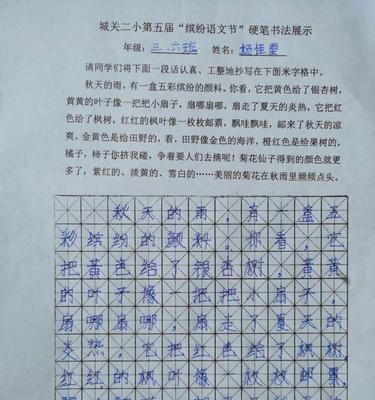 城关二小第五届“缤纷语文节”硬笔书法展示
年级：三.六班 姓名：杨佳
请同学们将下面一段话认真、工整地抄写在下面米字格中。
秋天的雨，有一盒五彩缤纷的颜料。你看，它把黄色给了银杏树，
黄黄的叶子像一把把小扇子，扇哪扇哪，扇走了夏天的炎热，它把红
色给了枫树，红红的枫叶像一枚枚邮票，飘哇飘哇，邮来了秋天的凉
爽。金黄色是给田野的，看，田野像金色的海洋，橙红色是给果树的，
橘子，柿子你挤我碰，争着要人们去摘呢！菊花仙子得到的颜色就更
多了，紫红的、淡黄的、雪白的……美丽的菊花在秋雨里频频点头。
秋天的雨，有一盒五
彩缤纷的颜料。你看，它
把黄色给了银杏树，黄黄
的叶子像一把把小扇子，
扇哪扇哪，扇走了夏天的
炎热，它把红色给了枫树
红红的枫叶像一枚枚邮票，